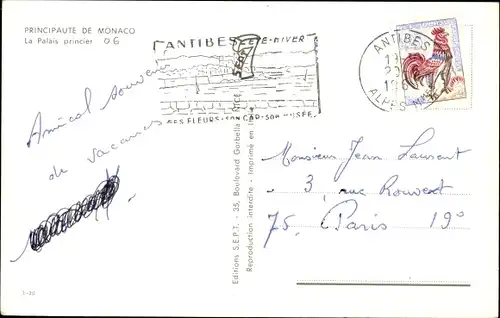 PRINCIPAUTE DE MONACO
Le Palais princier 06
Amical souvenir
de vacances
ANTIBES ETE-HIVER
SES FLEURS-SON CAP-SON MUSEE
ANTIBES
ALPES Mmes
Editions S.E.P.T. - 35, Boulevard Gorbella - NICE
Reproduction interdite - Imprimé en
Monsieur Jean Laurent
3, rue Rouvet
75. Paris 19°
1-20